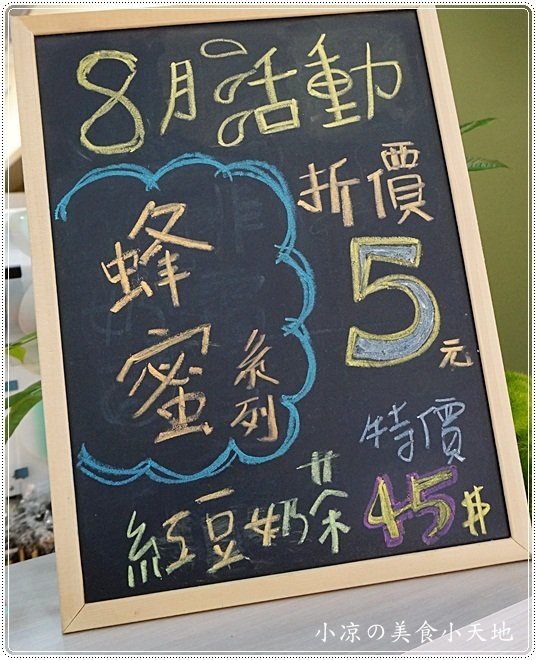 8月活動
蜂蜜系列
折價
5元
特價
紅豆奶茶 45#
小凉の美食小天地